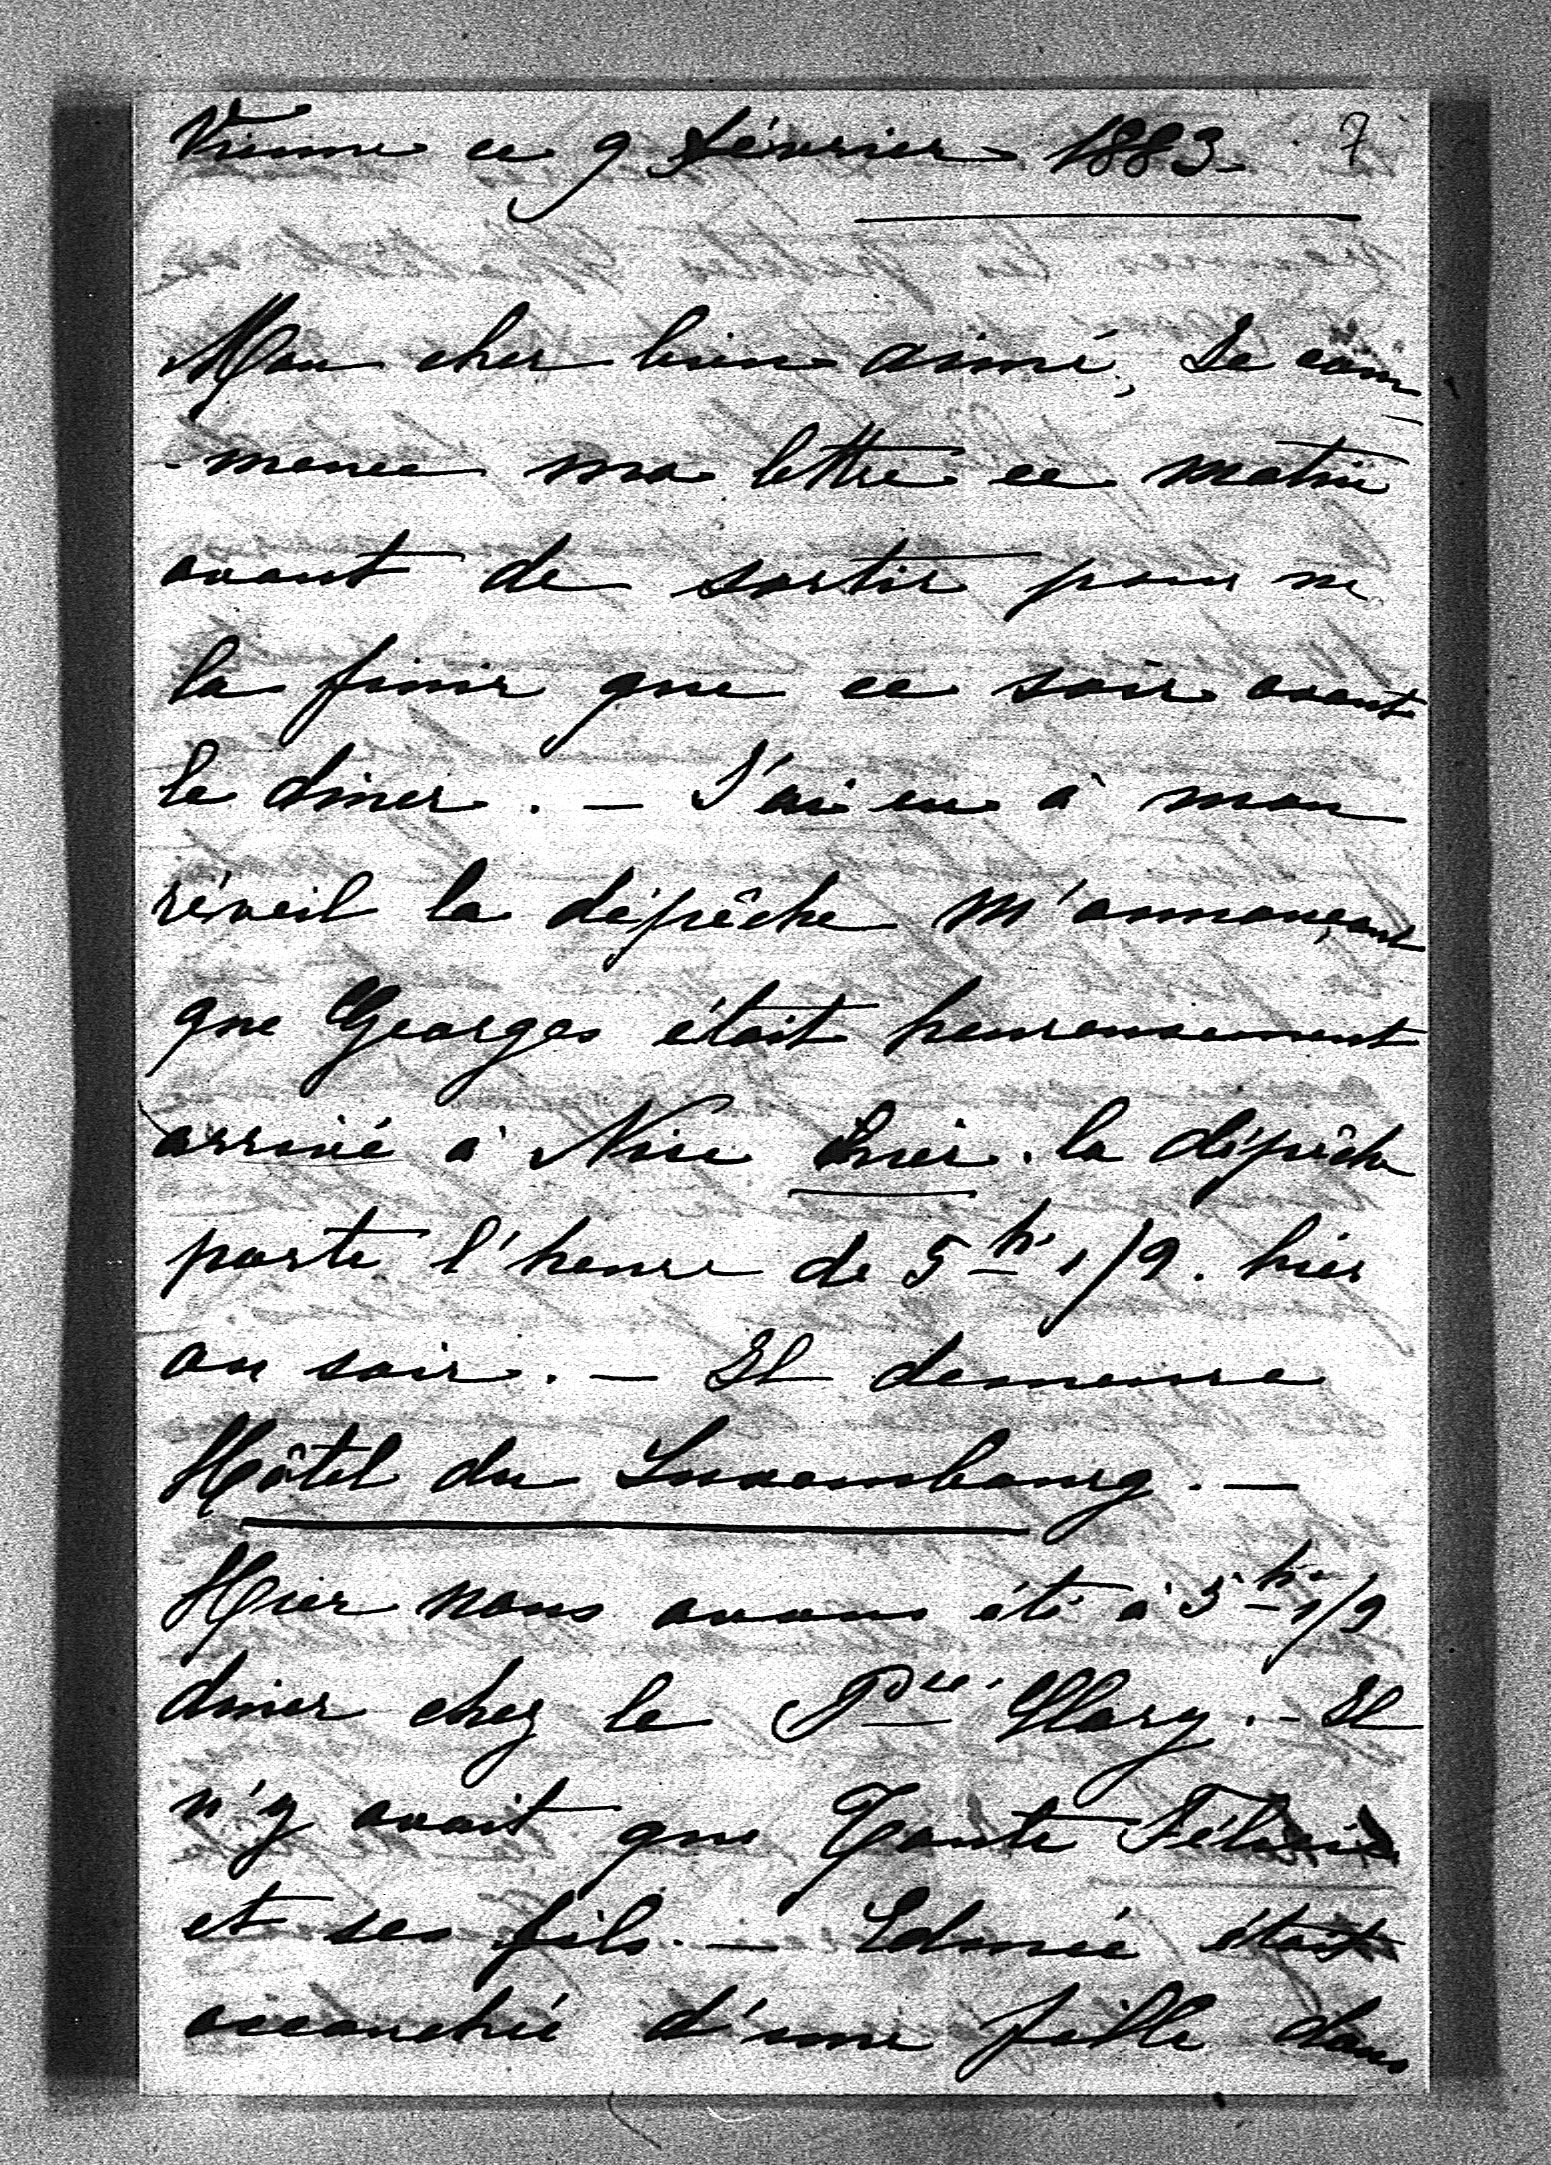 Vienne ce 9 Février 1883. 7
Mon cher bien aimé, Je com
-mence ma lettre ce matin
avant de sortir pour ne
la finir que ce soir avant
le diner. — J'ai eu à mon
réveil la dépêche m'annonçant
que Georges était heureusement
arrivé à Nice hier. la dépêche
porte l'heure de 5 h. 1/2. hier
au soir. — Il demeure
Hôtel du Luxembourg. —
Hier nous avons été à 5 h. 1/2
diner chez le Pce. Clary. — Il
n'y avait que Tante Félicie
et ses fils. — Edmée était
accouchée d'une fille dans